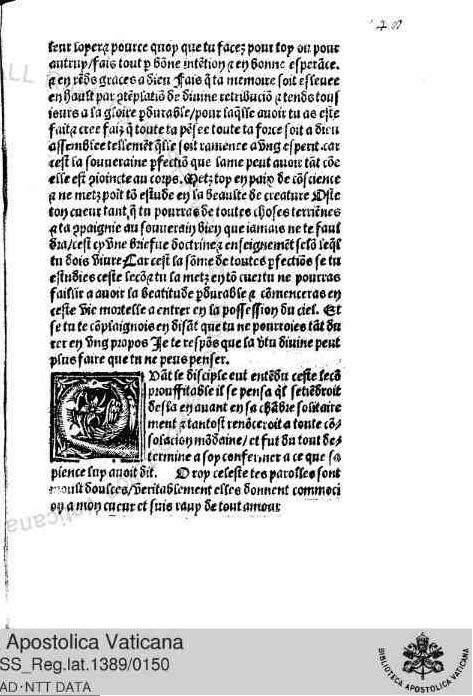 leur lopera pource quoy que tu facez pour toy ou pour
aultruy/fais tout p̱ bõne intẽtion ⁊ en bonne esperãce.
⁊ en rẽds graces a dieu Fais q̃ ta memoire soit esleuee
en hault par cõtẽplatiõ de diuine retribuciõ ⁊ tends tous
iours a la gloire p̱durable/pour laq̃lle auoir tu as este
fait⁊ cree faiz q̃ toute ta pẽsee toute ta force soit a dieu
assemblee tellemẽt q̃lle soit ramence a vng esperit car
cest la souueraine p̱fectiõ que lame peut auoir tãt cõe
elle est cõioincte au corps. Metz toy en paix de cõscience
⁊ ne metz poit tõ estude en la beaulte de creature Oste
ton cueur tant q̃ tu pourras de toutes choses terriẽnes
⁊ ta cõpaignie au souuerain bien que iamais ne te faul
dra/cest cy vne briefue doctrine⁊ enseignemẽt selõ leq̃l
tu dois viure Car cest la sõme de toutes p̱fectiõs se tu
estudies ceste lecõ⁊ tu la metz en tõ cueur tu ne pourras
faillir a auoir la beatitude p̱durable ⁊ cõmenceras en
ceste vie mortelle a entrer en la possession du ciel. Et
se tu te cõplaignois en disãt que tu ne pourroies tãt du
rer en vng propos Je te respõs que la v̾tu diuine peut
plus faire que tu ne peus penser.
Quãt le disciple eut entẽdu ceste lecõ
prouffitable il se pensa q̃l setiẽdroit
desla en auant en sa chãbre solitaire
ment ⁊ tantost renõceroit a toute cõ-
solacion mõdaine/et fut du tout de-
termine a soy confermer a ce que sa
pience luy auoit dit. O roy celeste tes parolles sont
moult doulces/veritablement elles donnent commoci
on a mon cueur et suis rauy de tout amour
Apostolica Vaticana
SS_Reg.lat.1389/0150
AD·NTT DATA
BIBLIOTECA APOSTOLICA VATICANA